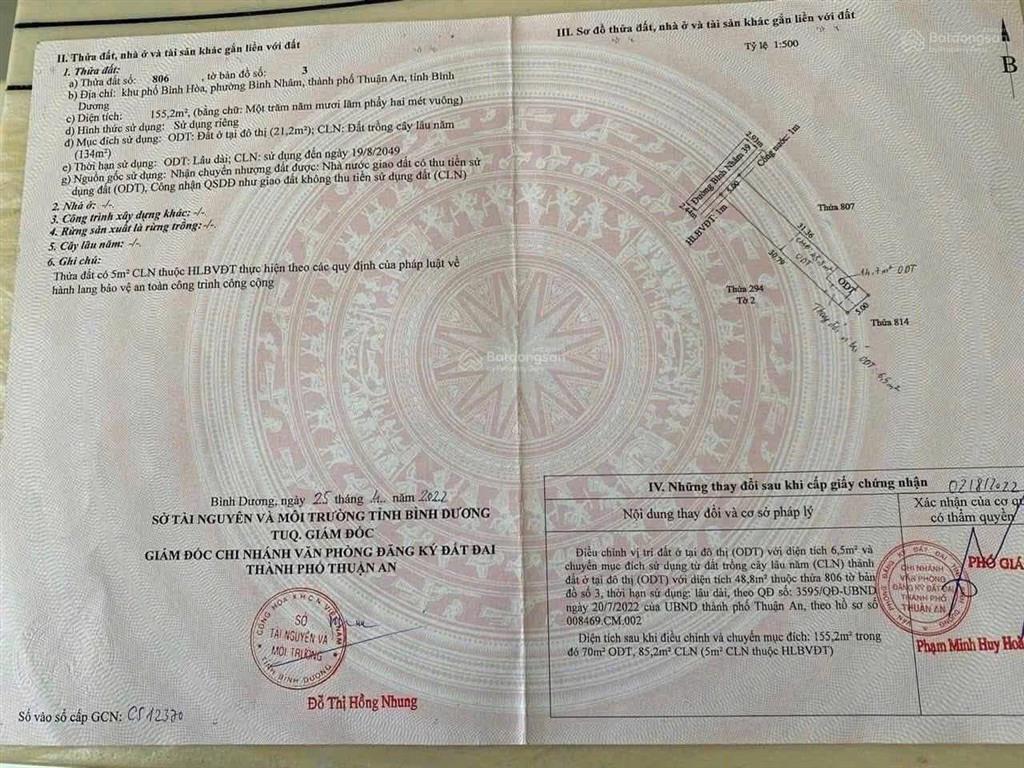 II. Thửa đất, nhà ở và tài sản khác gắn liền với đất
1. Thửa đất:
a) Thửa đất số: 806 , tờ bản đồ số: 3
b) Địa chỉ: khu phố Bình Hòa, phường Bình Nhâm, thành phố Thuận An, tỉnh Bình
Dương
c) Diện tích: 155,2m², (bằng chữ: Một trăm năm mươi lăm phẩy hai mét vuông)
d) Hình thức sử dụng: Sử dụng riêng
đ) Mục đích sử dụng: ODT: Đất ở tại đô thị (21,2m²); CLN: Đất trồng cây lâu năm
(134m²)
e) Thời hạn sử dụng: ODT: Lâu dài; CLN: sử dụng đến ngày 19/8/2049
g) Nguồn gốc sử dụng: Nhận chuyển nhượng đất được: Nhà nước giao đất có thu tiền sử
dụng đất (ODT), Công nhận QSDĐ như giao đất không thu tiền sử dụng đất (CLN)
2. Nhà ở: -/-.
3. Công trình xây dựng khác: -/-.
4. Rừng sản xuất là rừng trồng: -/-.
5. Cây lâu năm: -/-.
6. Ghi chú:
Thửa đất có 5m² CLN thuộc HLBVĐT thực hiện theo các quy định của pháp luật về
hành lang bảo vệ an toàn công trình công cộng
Bình Dương, ngày 25 tháng 4 năm 2022
SỞ TÀI NGUYÊN VÀ MÔI TRƯỜNG TỈNH BÌNH DƯƠNG
TUQ. GIÁM ĐỐC
GIÁM ĐỐC CHI NHÁNH VĂN PHÒNG ĐĂNG KÝ ĐẤT ĐAI
THÀNH PHỐ THUẬN AN
CỘNG HÒA X.H.C.N VIỆT NAM
SỞ
TÀI NGUYÊN VÀ
MÔI TRƯỜNG
TỈNH BÌNH DƯƠNG
Đỗ Thị Hồng Nhung
Số vào sổ cấp GCN: CS12370
III. Sơ đồ thửa đất, nhà ở và tài sản khác gắn liền với đất
Tỷ lệ 1:500
B
Batdongsan
Batdongsan
Batdongsan
Đường Bình Nhâm 39
2.93m
Cống nước: 1m
5.00
HLBVĐT: 1m
Thửa 807
31.36
30.79
ODT
ODT
14.7m² ODT
5.00
Thửa 294
Tờ 2
Thửa 814
ODT 6,5m²
IV. Những thay đổi sau khi cấp giấy chứng nhận
02/8/2022
Nội dung thay đổi và cơ sở pháp lý
Xác nhận của cơ q
có thẩm quyền
Điều chỉnh vị trí đất ở tại đô thị (ODT) với diện tích 6,5m² và
chuyển mục đích sử dụng từ đất trồng cây lâu năm (CLN) thành
đất ở tại đô thị (ODT) với diện tích 48,8m² thuộc thửa 806 tờ bản
đồ số 3, thời hạn sử dụng: lâu dài, theo QĐ số: 3595/QĐ-UBND
ngày 20/7/2022 của UBND thành phố Thuận An, theo hồ sơ số
008469.CM.002
Diện tích sau khi điều chỉnh và chuyển mục đích: 155,2m² trong
đó 70m² ODT, 85,2m² CLN (5m² CLN thuộc HLBVĐT)
PHÓ GIÁ
CHI NHÁNH
VĂN PHÒNG
ĐĂNG KÝ ĐẤT ĐAI
THÀNH PHỐ
THUẬN AN
Phạm Minh Huy Hoà